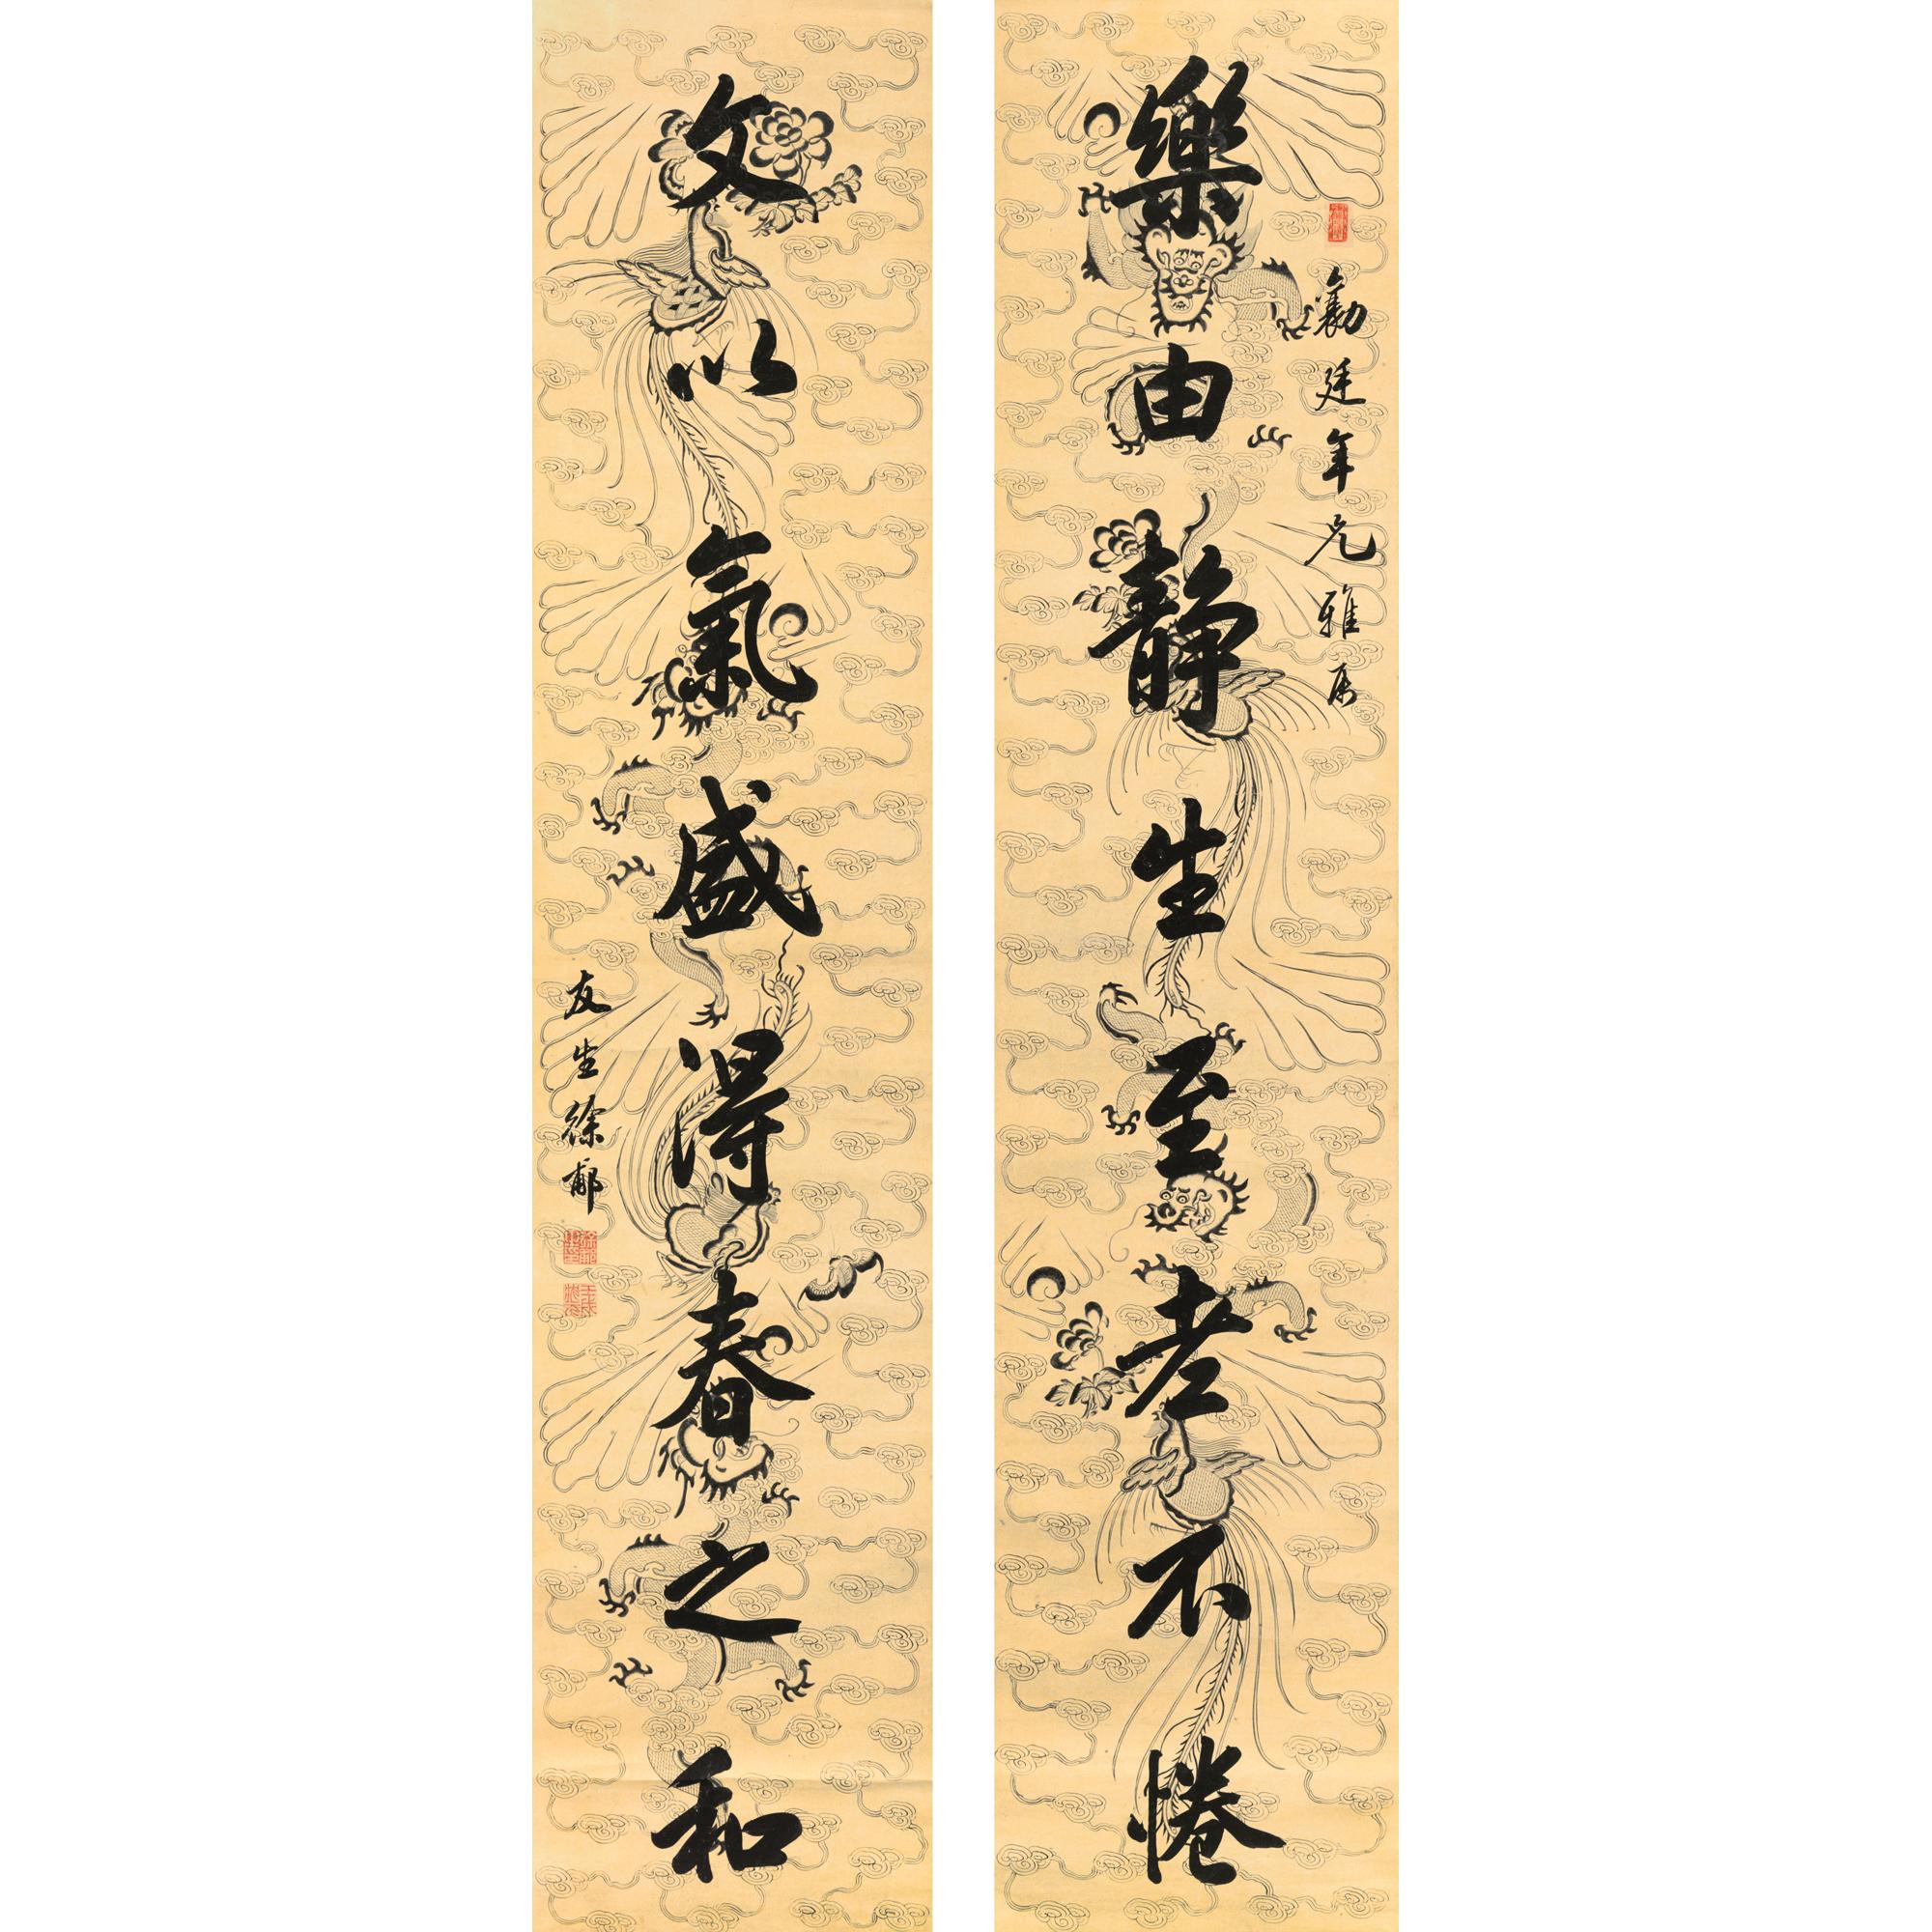 勷廷年兄雅属
樂由静生至老不惓
文以氣盛得春之和
友生徐郙